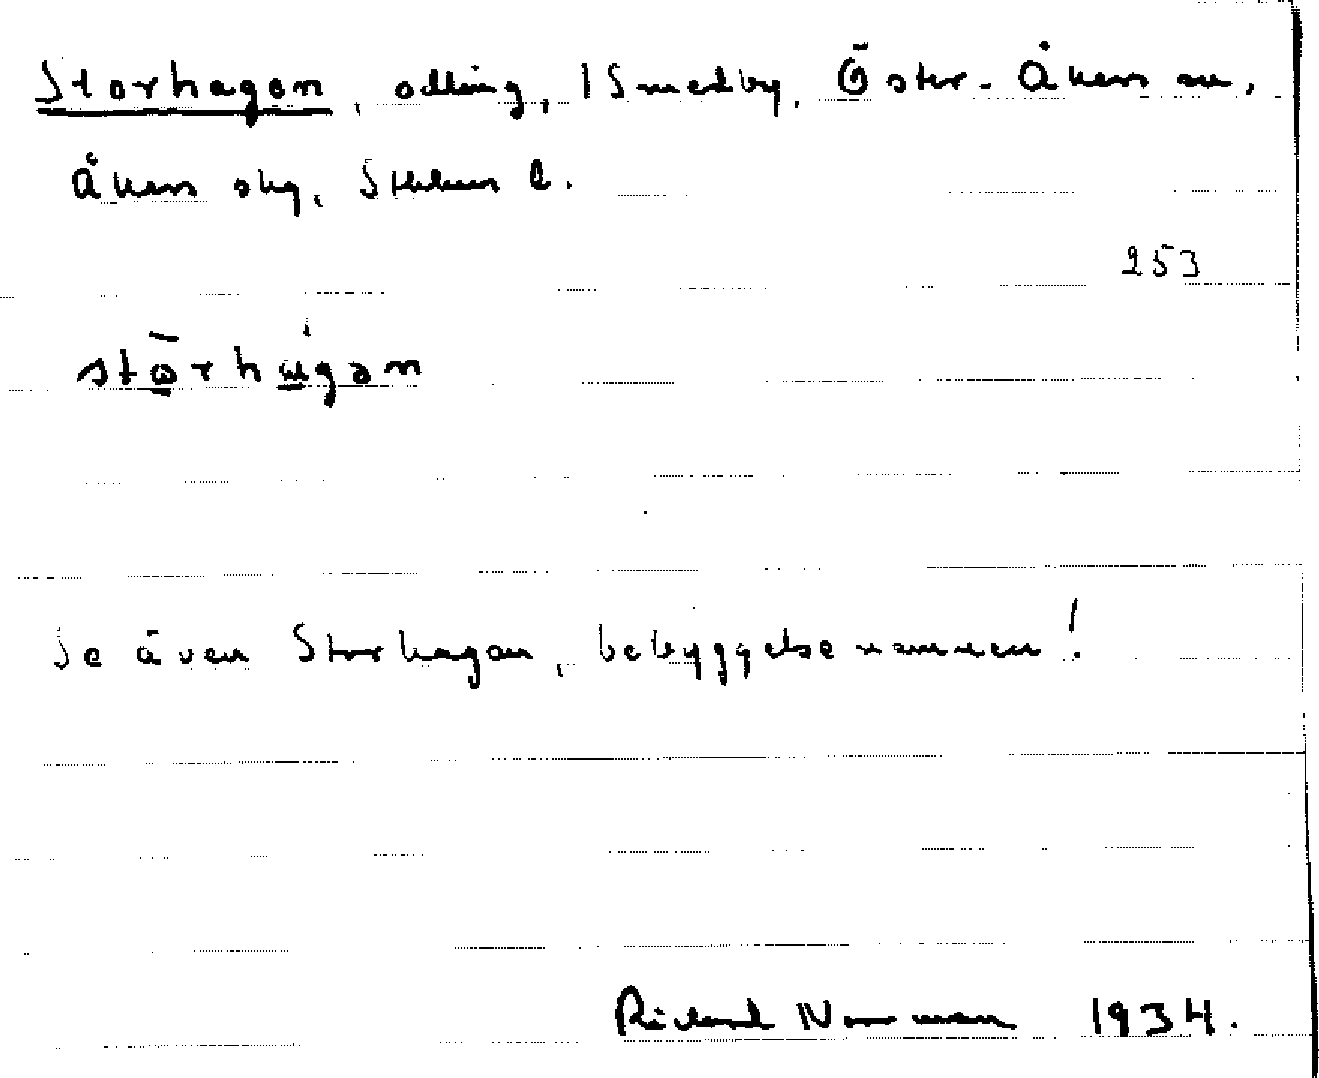 Storhagen, odling, 1 Smedby, Öster-Åkers sn,
Åkers skg, Sthlms l.
253
stōrhágən
Se även Storhagen, bebyggelsenamnen!
Rickard Norrman 1934.